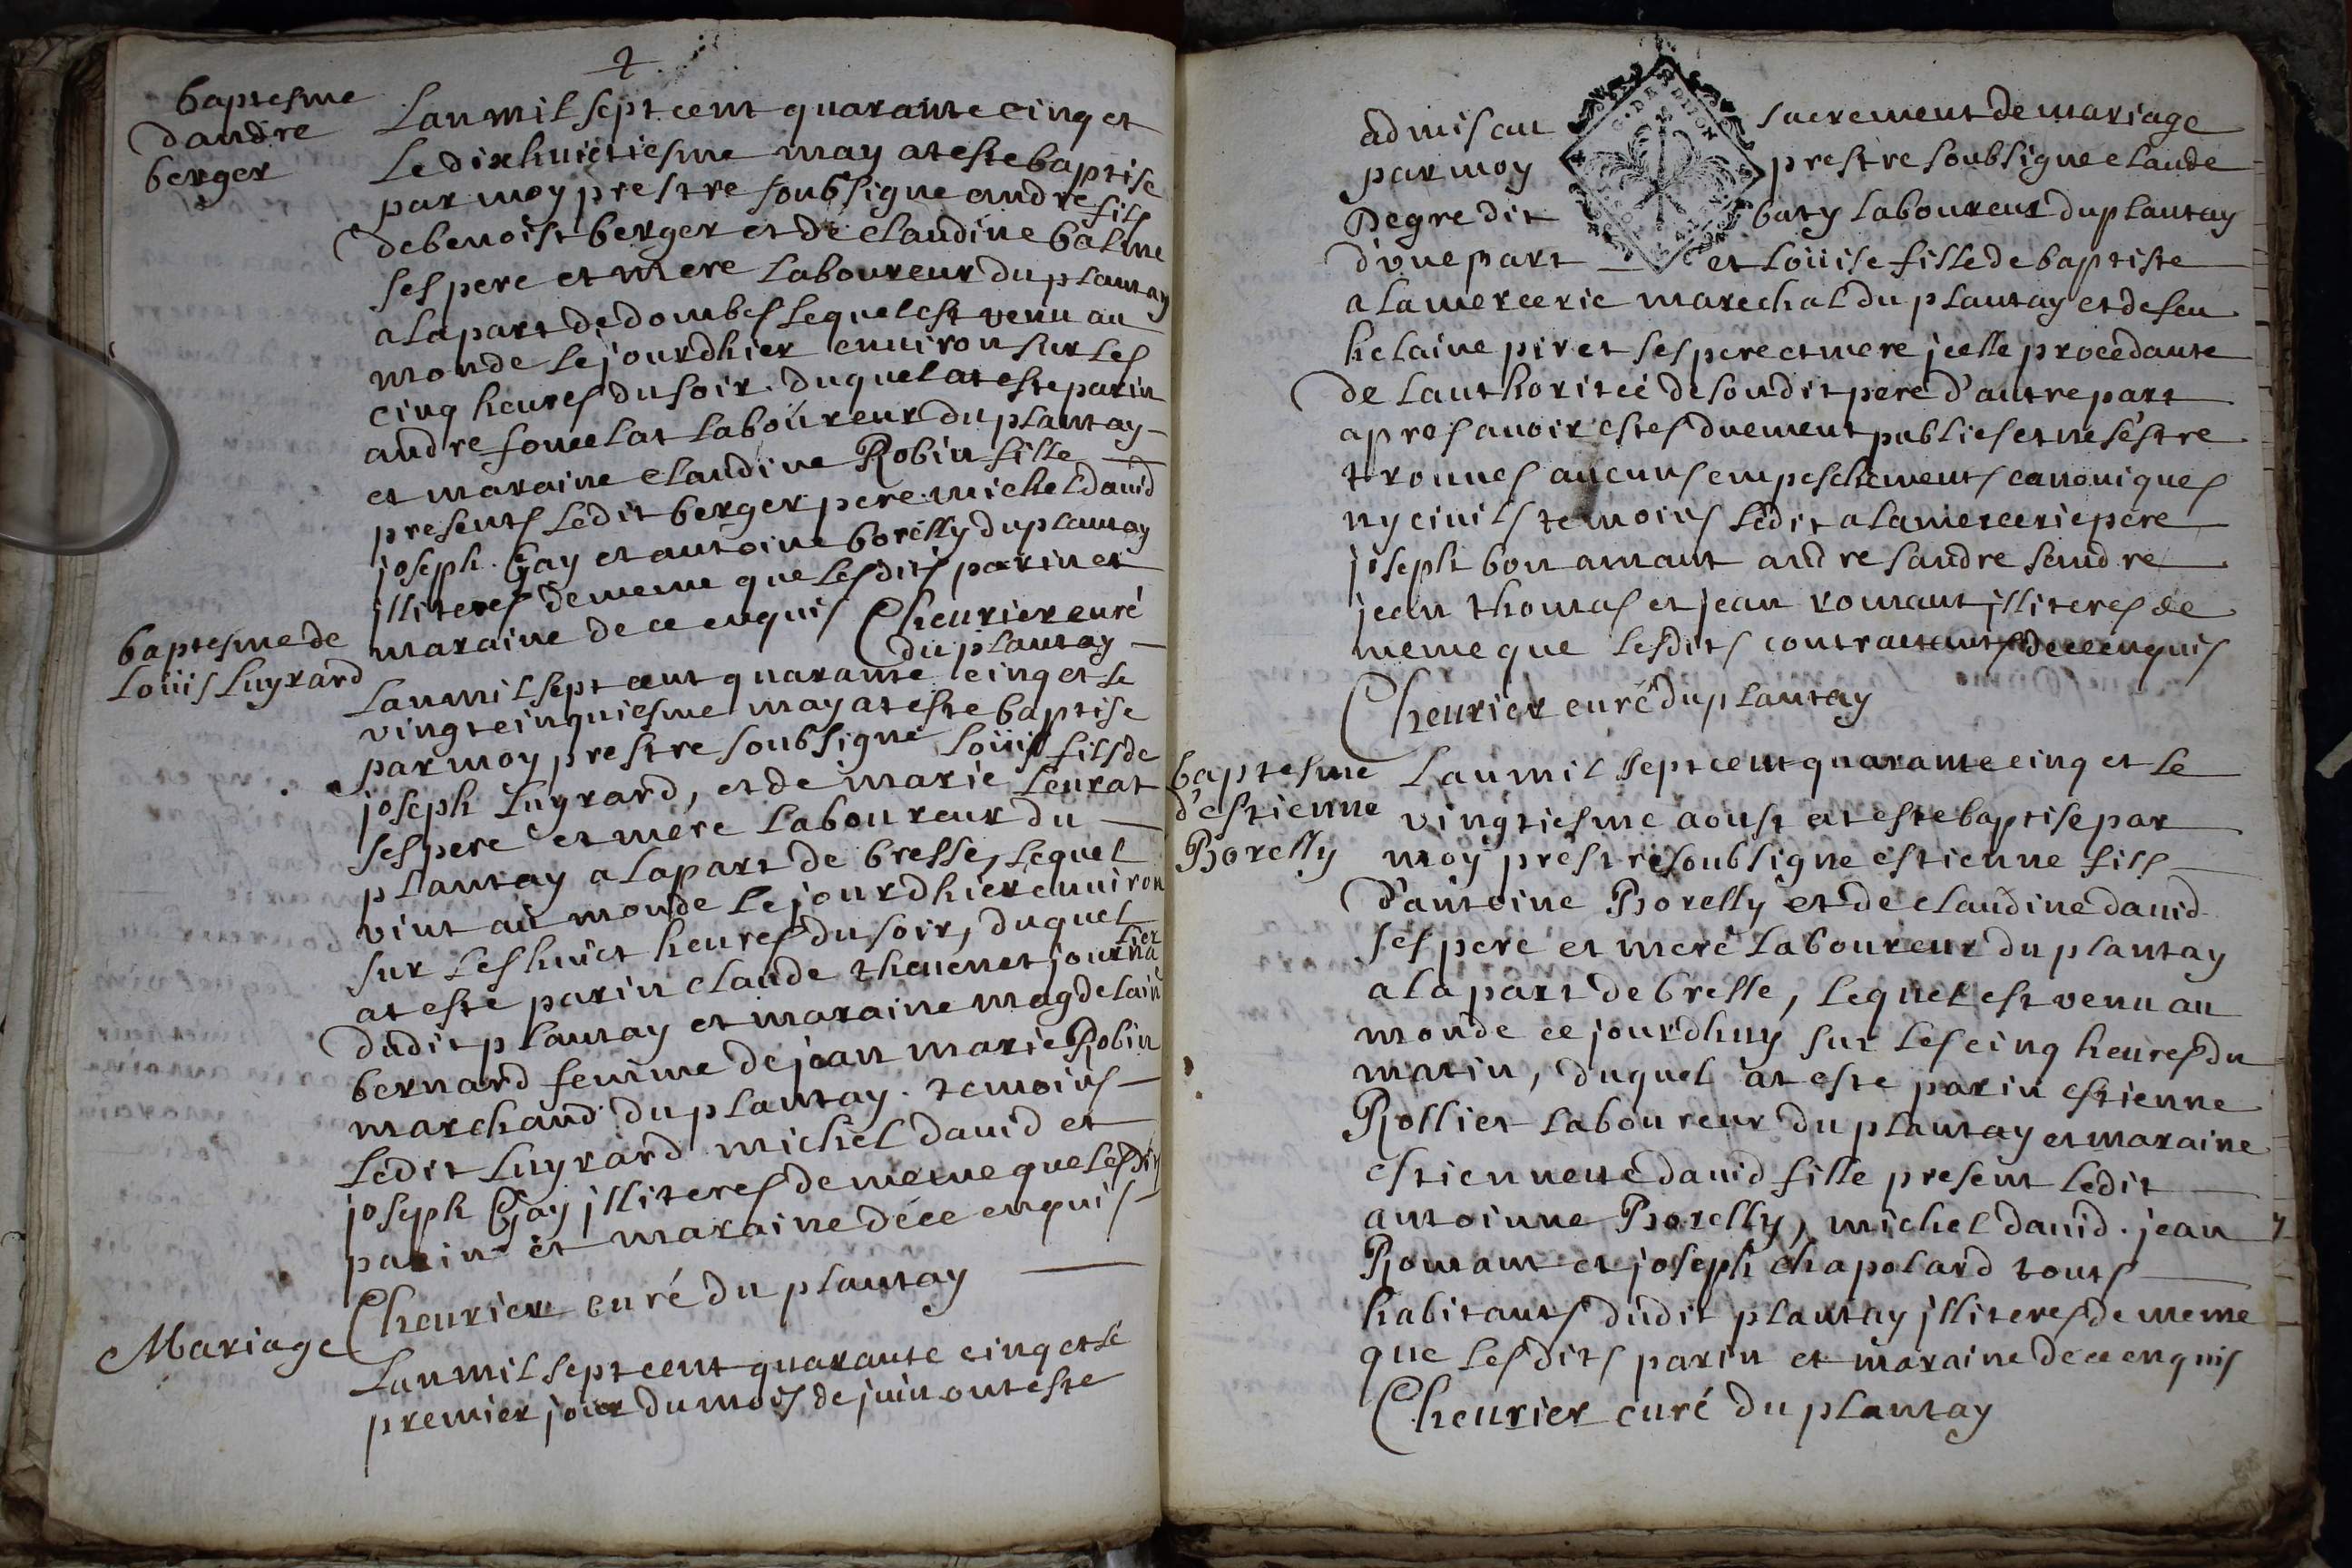 2
baptesme
dandre
berger
Lan mil sept cent quarante cinq et
Le dixhuictiesme may at este baptise
par moy prestre soubsigne andre fils
de benoist berger et de claudine balme
ses pere et mere laboureur du plantay
a la part de dombes lequel est venu au
monde le jourdhier environ sur les
cinq heures du soir. duquel at este parin
andre fouuelat laboureur du plantay
et maraine claudine Robin fille
presents ledit berger pere michel david
joseph Gay et antoine borelly du plantay
jlliteres de meme que lesdits parin et
maraine de ce enquis Cheurier curé
du plantay
baptesme de
Loüis Luyrard
Lan mil sept cent quarante cinq et le
vingt cinquiesme may at este baptise
par moy prestre soubsigné Loüis fils de
joseph Luyrard, et de marie Leurat
ses pere et mere laboureur du
plantay a la part de bresse, lequel
vint au monde le jourdhier environ
sur les huict heures du soir, duquel
at este parin claude theuenet journalier
dudit plantay et maraine magdelain
bernard femme de jean marie Robin
marchand du plantay. temoins
Ledit Luyrard michel david et
joseph Gay jlliteres de meme que lesdits
parin et maraine de ce enquis
Cheurier curé du plantay
Mariage
Lan mil sept cent quarante cinq et le
premier jour du mois de juin ont este
admis au sacrement de mariage
par moy prestre soubsigne claude
Degre dit baty laboureur du plantay
d'vne part et Loüise fille de baptiste
alamercerie marechal du plantay et de feu
helaine piret ses pere et mere jcelle procedante
de lauthoriteé de sondit pere d'autre part
apres auoir estes duement publies et ne s'estre
trouues aucuns empeschements canoniques
ny ciuils temoins ledit alamercerie pere
joseph bon amant andre sandre sandre
jean thomas et jean romant jlliteres de
meme que lesdits contractants de ce enquis
Cheurier curé du plantay
baptesme
d'estienne
Borelly
Lan mil sept cent quarante cinq et le
vingtiesme aoust at este baptise par
moy prestre soubsigne estienne fils
d'antoine Borelly et de claudine david
ses pere et mere laboureur du plantay
a la part de bresse, lequel est venu au
monde ce jourdhuy sur les cinq heures du
matin, duquel at este parin estienne
Rollier laboureur du plantay et maraine
estiennette david fille present ledit
antoinne Borelly, michel david. jean
Romant et joseph chapolard touts
habitants dudit plantay jlliteres de meme
que lesdits parin et maraine de ce enquis
Cheurier curé du plantay